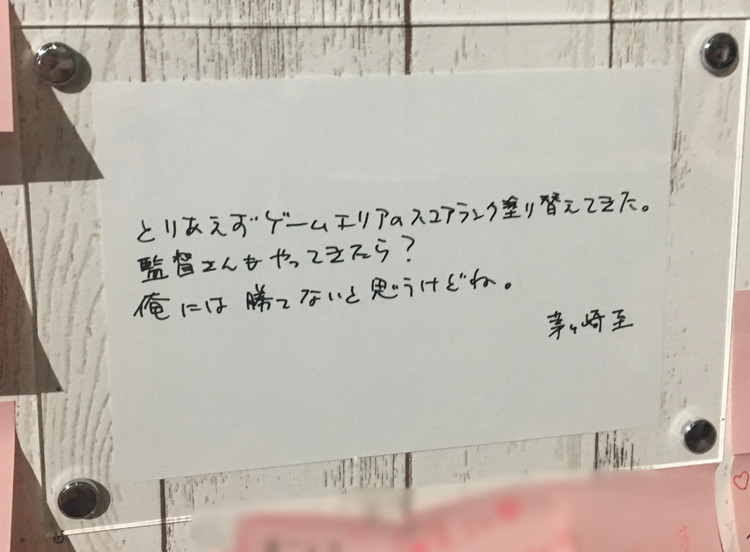 とりあえずゲームエリアのスコアランク塗り替えてきた。
監督さんもやってきたら？
俺には勝てないと思うけどね。
茅ヶ崎至